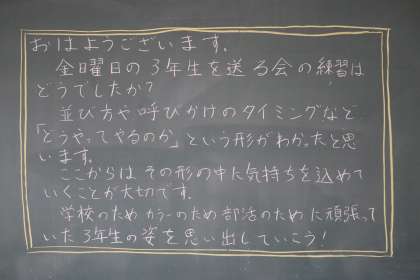 おはようございます。
金曜日の3年生を送る会の練習は
どうでしたか？
並び方や呼びかけのタイミングなど
「どうやってやるのか」という形がわかったと思
います。
ここからはその形の中に気持ちを込めて
いくことが大切です。
学校のためカラーのため部活のために頑張って
いた3年生の姿を思い出していこう！